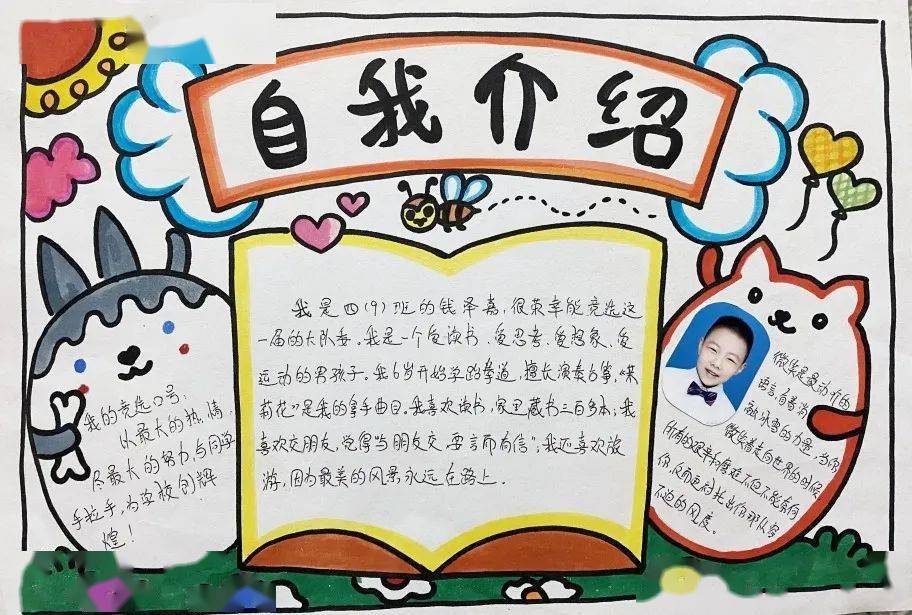 自我介绍
我是四(9)班的钱泽嘉,很荣幸能竞选这
一届的大队委。我是一个爱读书、爱思考、爱想象、爱
运动的男孩子。我6岁开始学跆拳道,擅长演奏古筝,“茉
莉花”是我的拿手曲目。我喜欢读书,家里藏书三百多本;我
喜欢交朋友,觉得“与朋友交,要言而有信”;我还喜欢旅
游,因为最美的风景永远在路上。
我的竞选口号:
以最大的热情,
尽最大的努力,与同学
手拉手,为学校创辉
煌!
微笑是最动听的
语言,自有消
融冰雪的力量,当你
微笑着走向世界的时候
所有的艰辛和磨难不但不能奈何
你,反而更衬托出你那从容
不迫的风度。